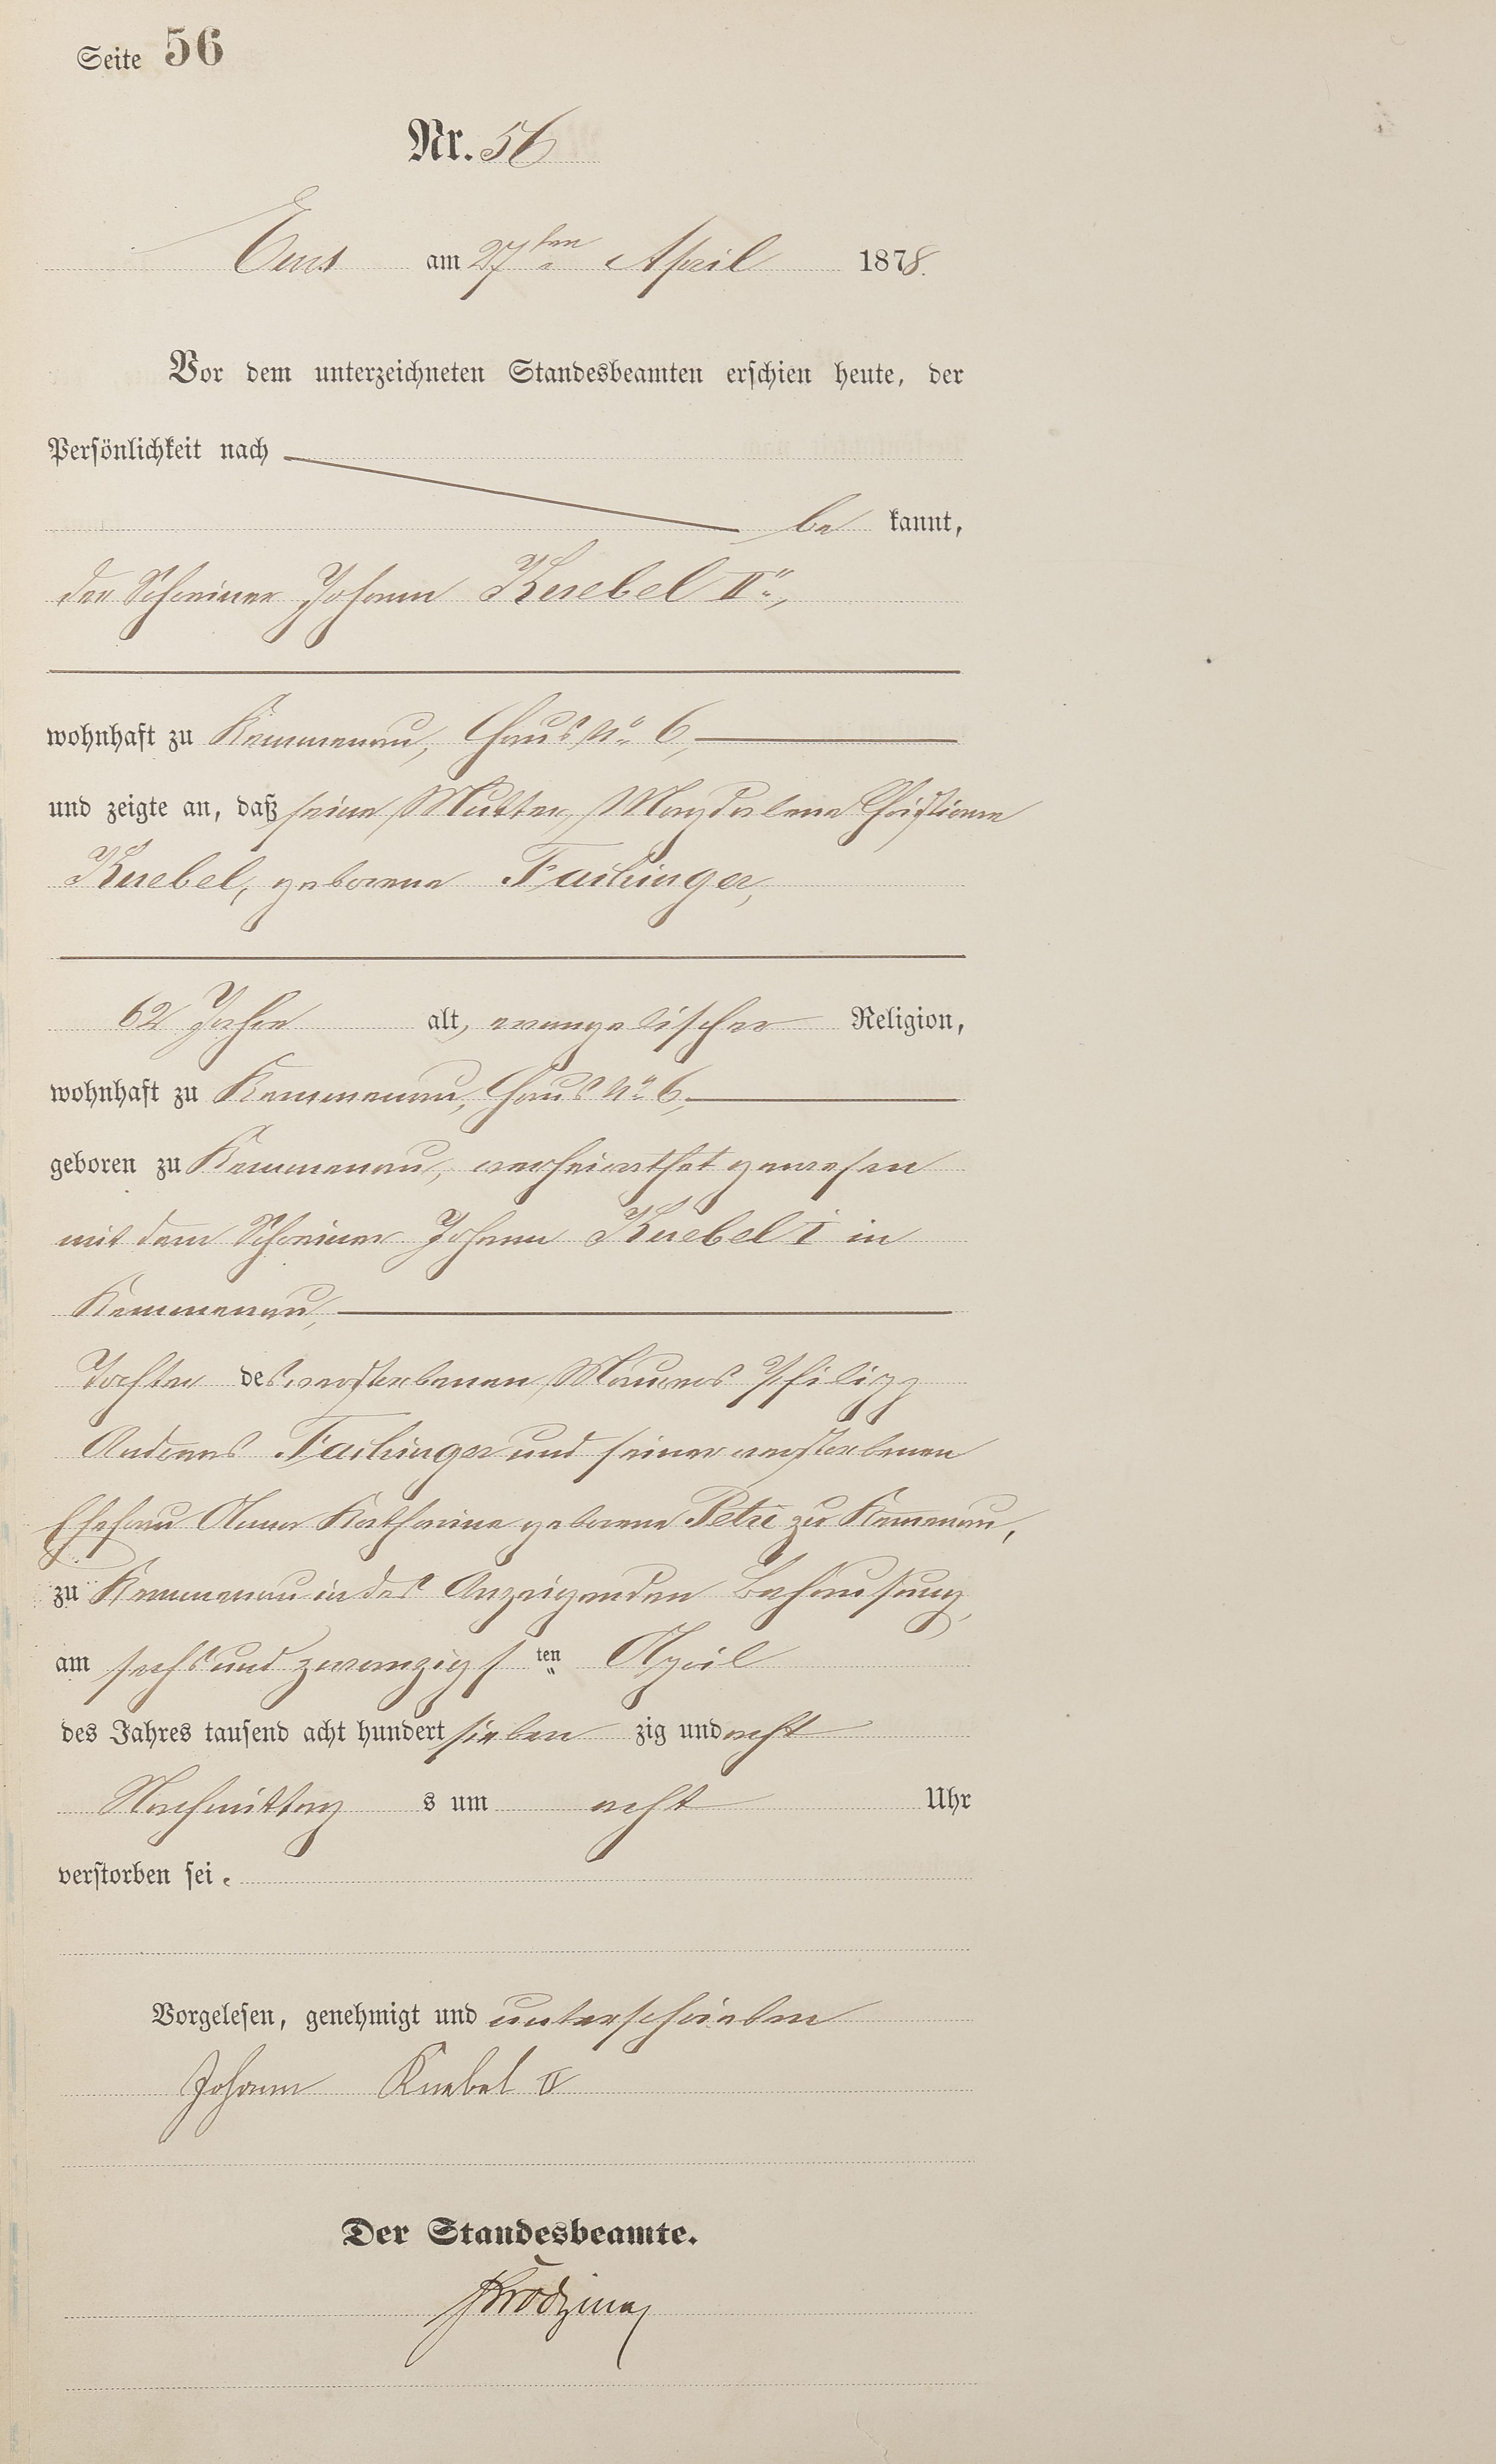 Seite 56
Nr. 56
Ems am 27ten April 1878.
Vor dem unterzeichneten Standesbeamten erschien heute, der
Persönlichkeit nach
be kannt,
der Schreiner Johann Knebel IIr,
wohnhaft zu Kemmenau, Haus No 6,
und zeigte an, daß seine Mutter, Magdalene Christiane
Knebel, geborene Fachinger,
62 Jahre alt, evangelischer Religion,
wohnhaft zu Kemmenau, Haus No 6,
geboren zu Kemmenau, verheirathet gewesen
mit dem Schreiner Johann Knebel I in
Kemmenau,
Tochter des verstorbenen Maurers Philipp
Andreas Fachinger und seiner verstorbenen
Ehefrau Anna Katharine geborene Petri zu Kemmenau,
zu Kemmenau in des Anzeigenden Behausung,
am sechs und zwanzigs ten April
des Jahres tausend acht hundert sieben zig und acht
Nachmittag s um acht Uhr
verstorben sei.
Vorgelesen, genehmigt und unterschrieben
Johann Knebel II
Der Standesbeamte.